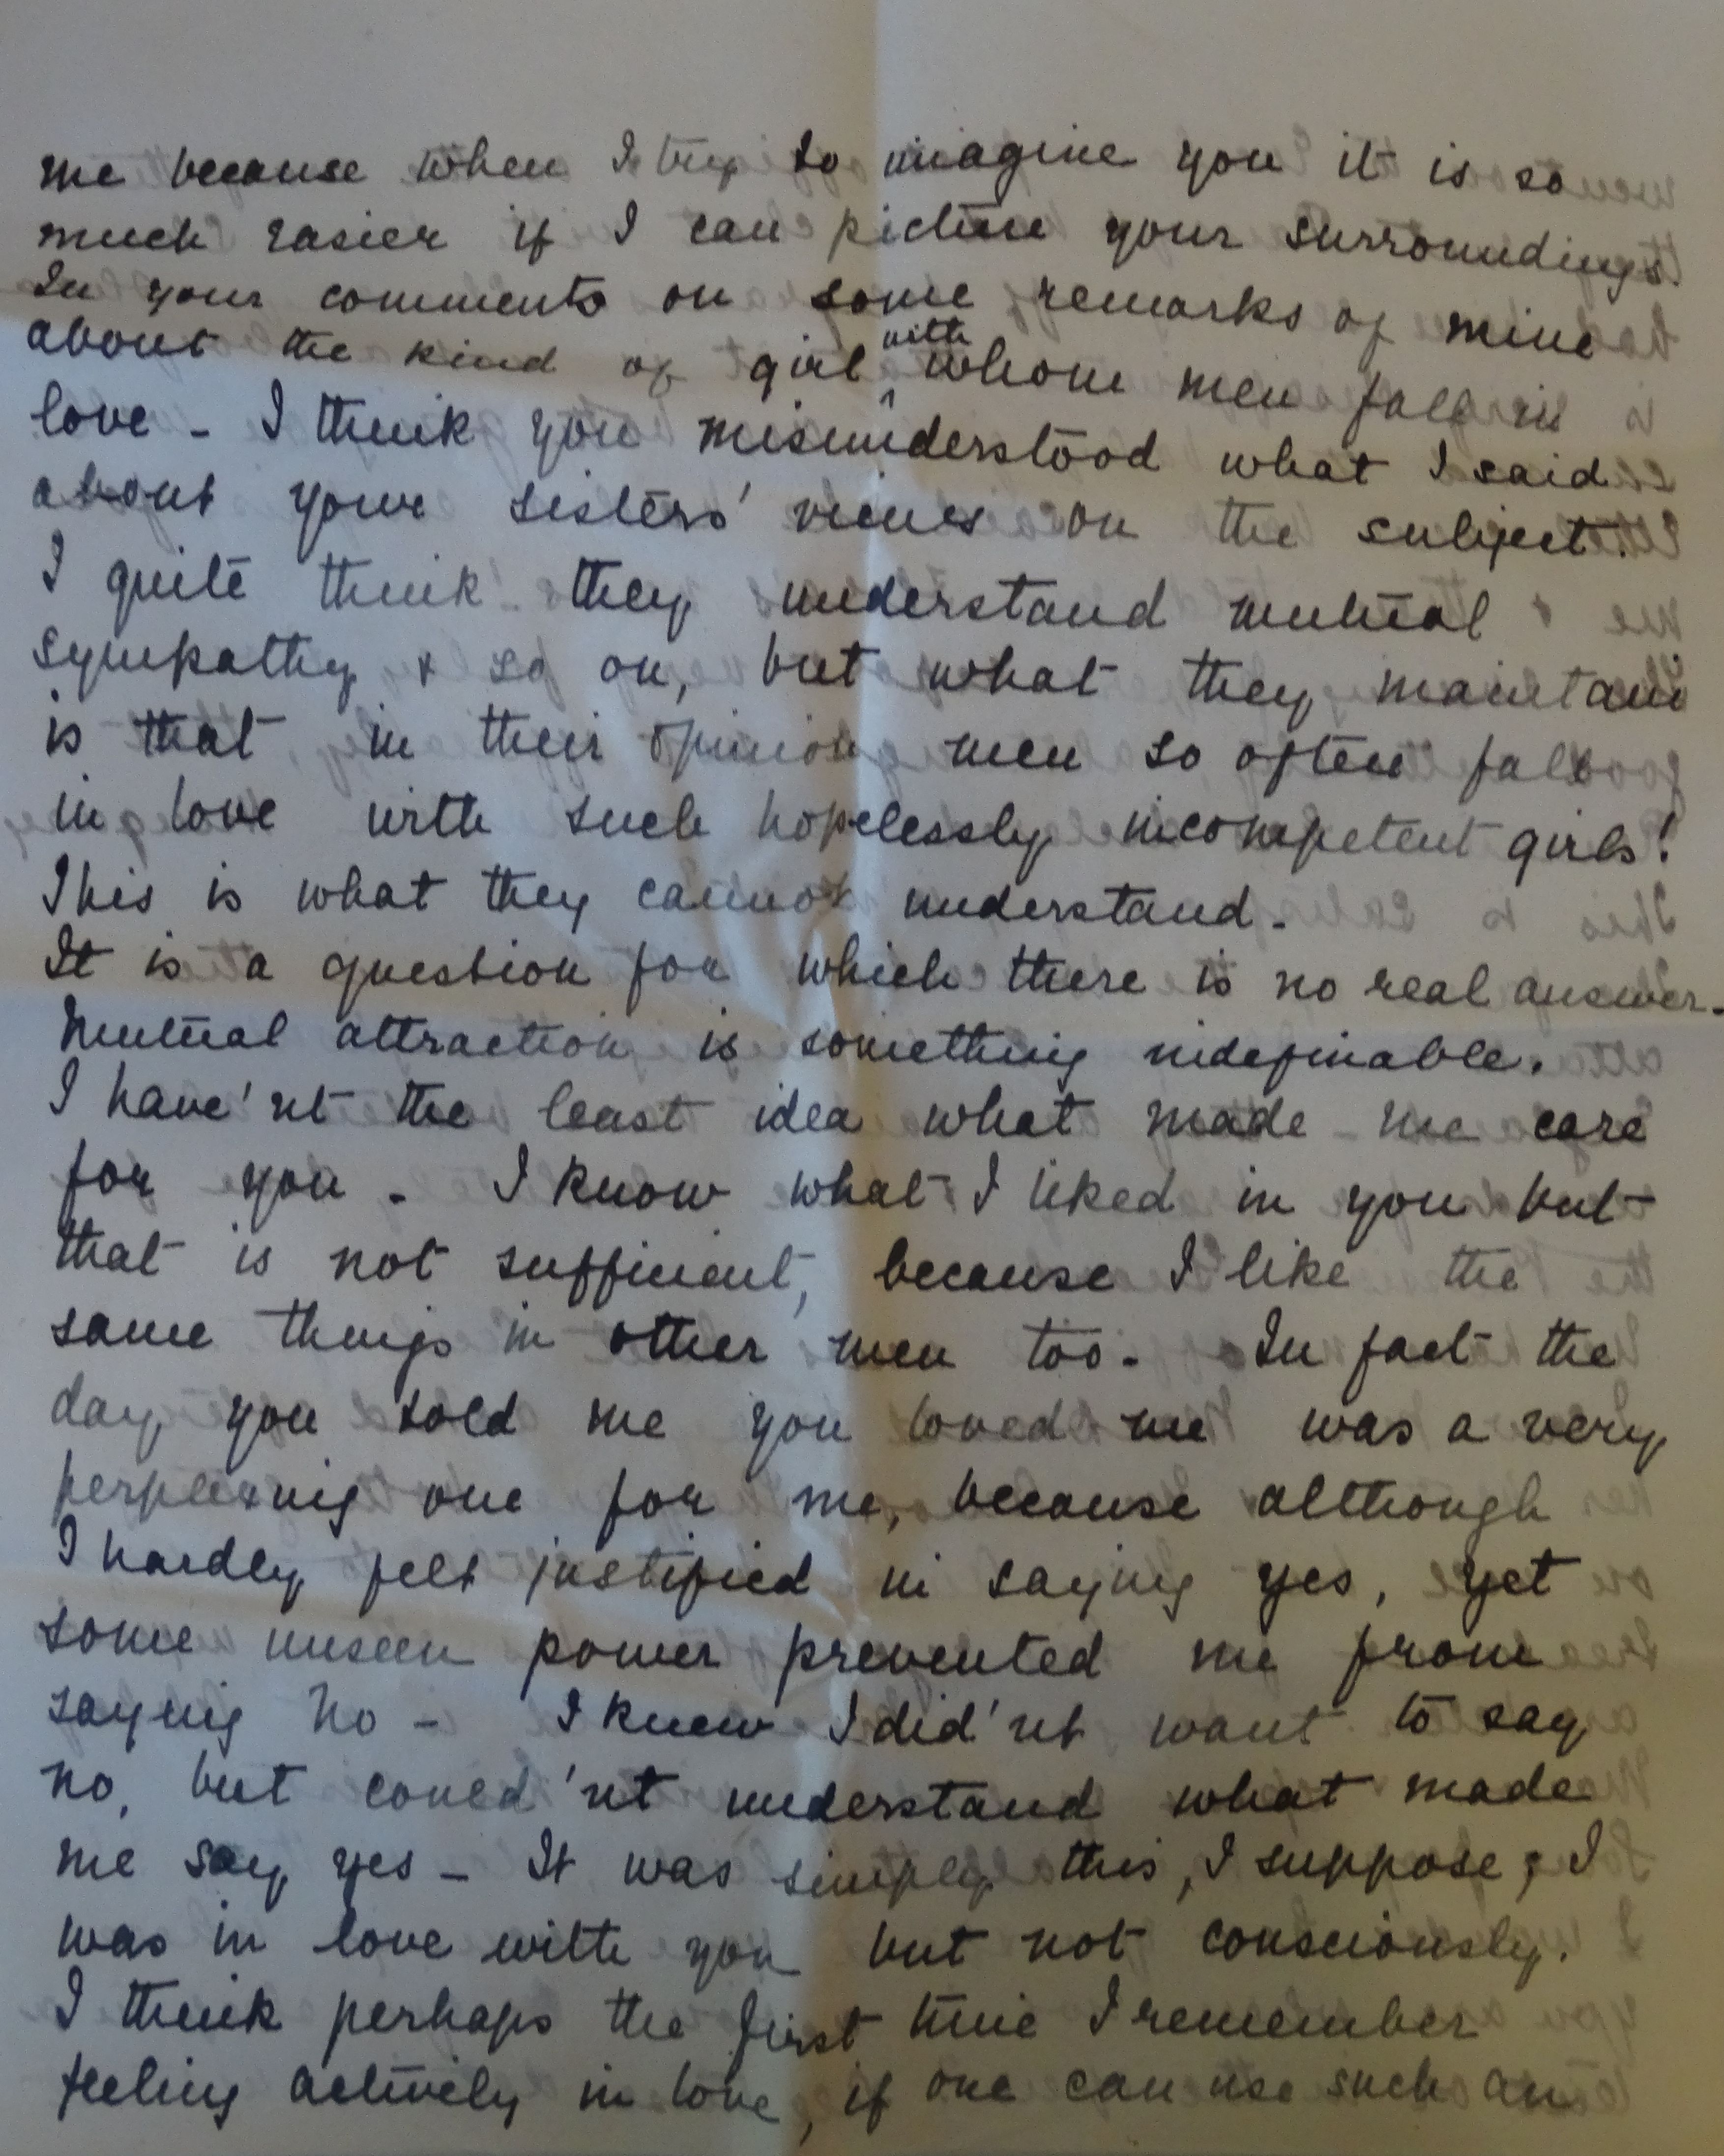 me because when I try to imagine you it is so
much easier if I can picture your surroundings.
In your comments on some remarks of mine
about the kind of girl with whom men fall in
love - I think you misunderstood what I said
about your sisters' views on the subject.
I quite think they understand mutual
sympathy & so on, but what they maintain
is that in their opinion men so often fall
in love with such hopelessly incompetent girls!
This is what they cannot understand.
It is a question for which there is no real answer.
Mutual attraction is something indefinable.
I have'nt the least idea what made me care
for you - I know what I liked in you but
that is not sufficient, because I like the
same things in other men too. In fact the
day you told me you loved me was a very
perplexing one for me, because although
I hardly felt justified in saying yes, yet
some unseen power prevented me from
saying no - I knew I did'nt want to say
no, but could'nt understand what made
me say yes - It was simply this, I suppose; I
was in love with you but not consciously.
I think perhaps the first time I remember
feeling actively in love, if one can use such an